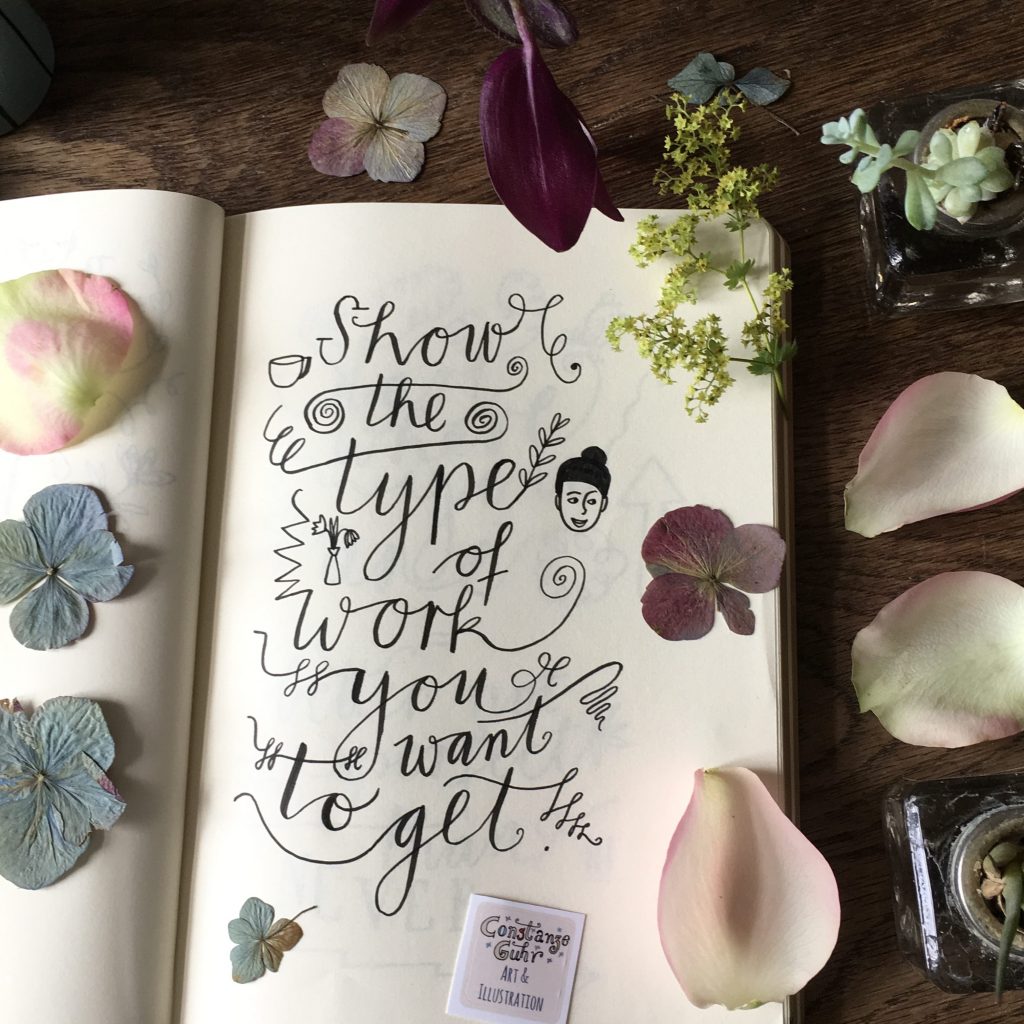 Show
the
type
of
work
you
want
to
get.
Constanze
Guhr
ART &
ILLUSTRATION